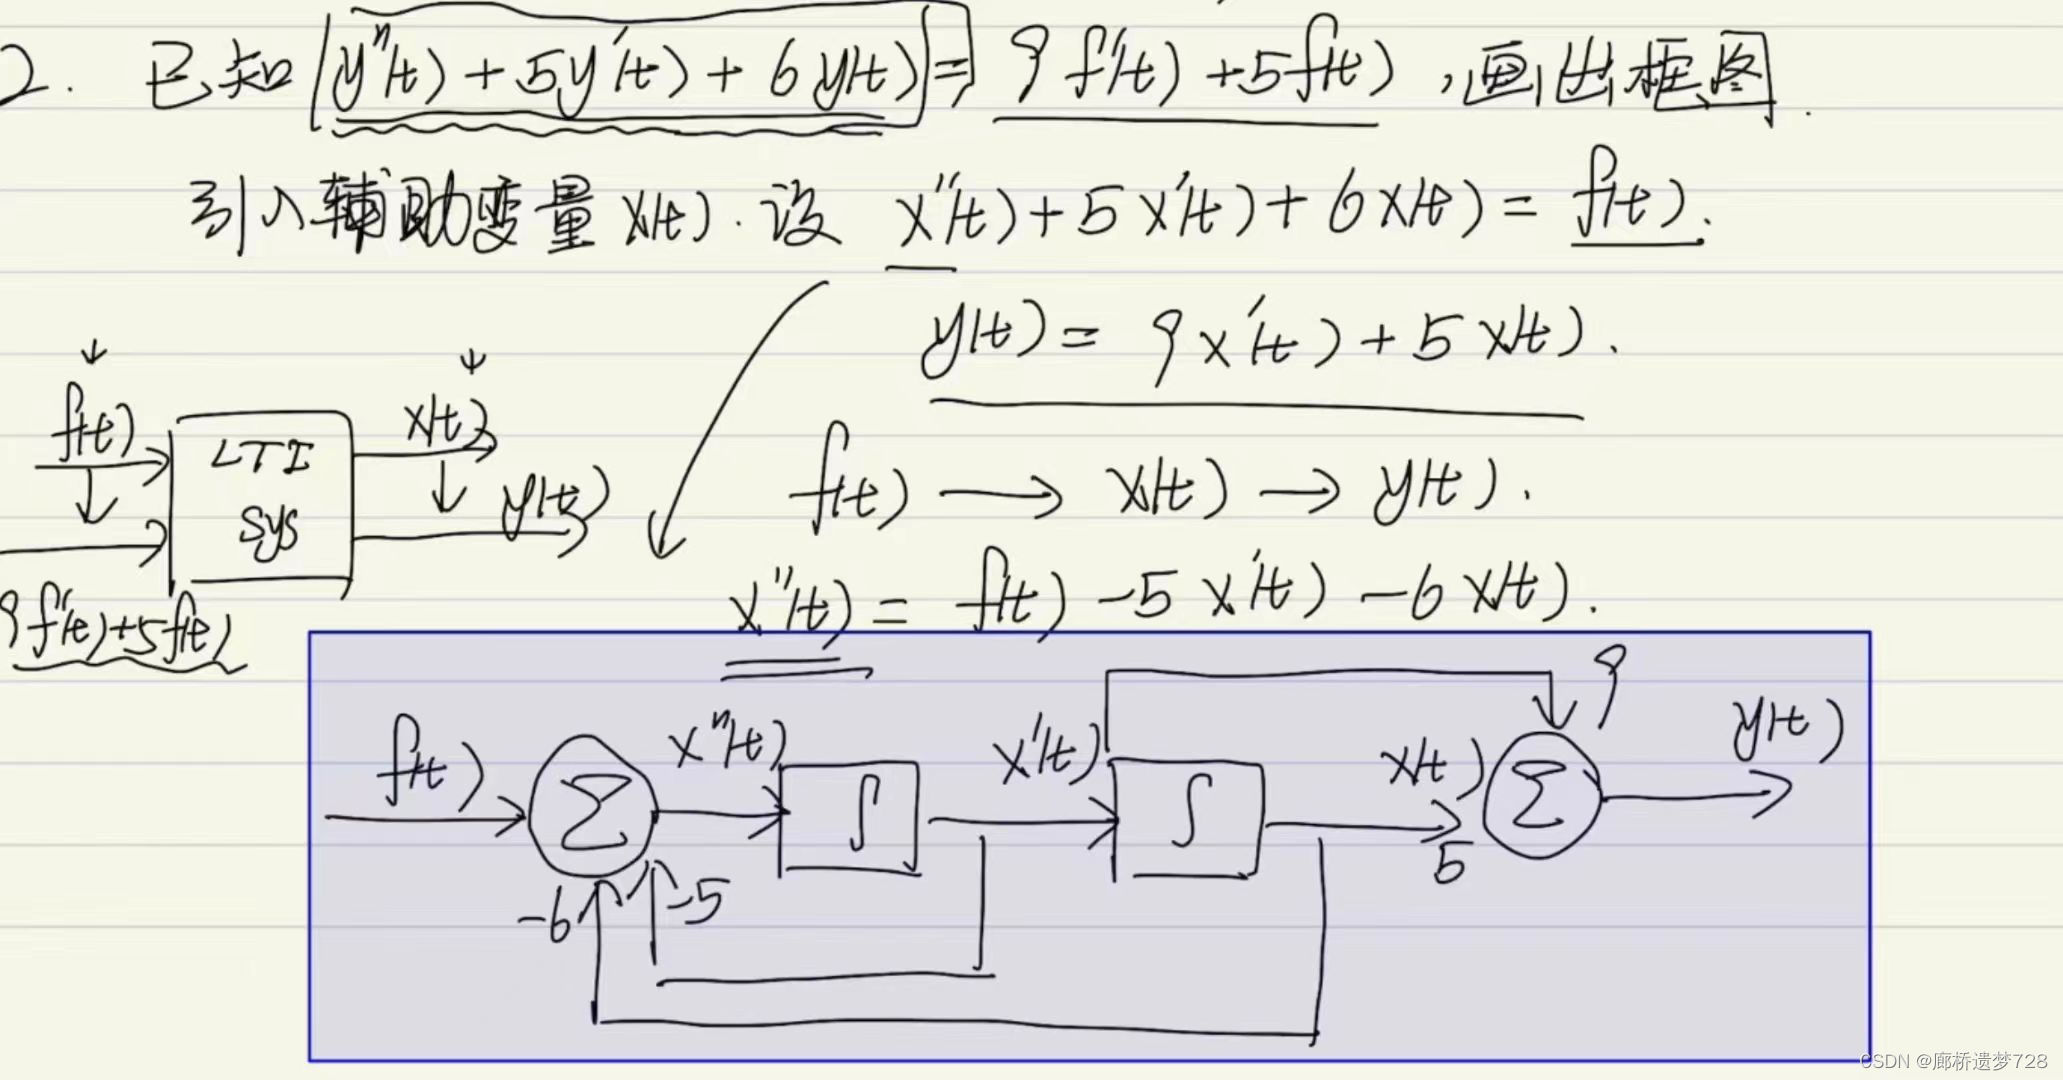 2. 已知 y''(t) + 5y'(t) + 6y(t) = 9f'(t) + 5f(t), 画出框图.
引入辅助变量 x(t). 设 x''(t) + 5x'(t) + 6x(t) = f(t).
y(t) = 9x'(t) + 5x(t).
f(t) x(t)
LTI
sys
y(t)
9f'(t)+5f(t)
f(t) → x(t) → y(t).
x''(t) = f(t) - 5x'(t) - 6x(t).
f(t) Σ x''(t) ∫ x'(t) ∫ x(t) 5 Σ 9 y(t)
-6 -5
CSDN @廊桥遗梦728